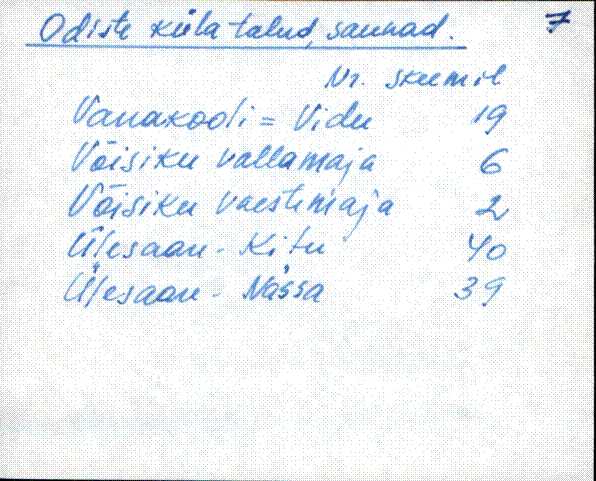 Odiste küla talud, saunad. 7
Nr. skeemil
Vanakooli = Vidu 19
Võisiku vallamaja 6
Võisiku vaestemaja 2
Ülesaare - Kitu 40
Ülesaare - Nässa 39